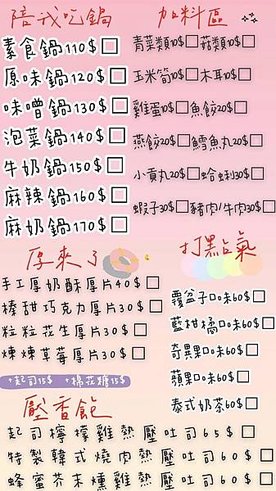 陪我吃鍋
素食鍋110$□
原味鍋120$□
味噌鍋130$□
泡菜鍋140$□
牛奶鍋150$□
麻辣鍋160$□
麻奶鍋170$□
加料區
青菜類10$□菇類10$□
玉米筍10$□木耳10$□
雞蛋10$□魚餃20$□
燕餃20$□鱈魚丸20$□
小貢丸20$□蛤蜊30$□
蝦子30$□豬肉/牛肉30$□
厚來了
手工厚奶酥厚片40$□
榛甜巧克力厚片30$□
粒粒花生厚片30$□
煉煉草莓厚片30$□
+起司15$ +棉花糖15$
打點氣
覆盆子口味60$□
藍柑橘口味60$□
奇異果口味60$□
蘋果口味60$□
泰式奶茶60$□
壓香飽
起司檸檬雞熱壓吐司65$□
特製韓式燒肉熱壓吐司60$□
蜂蜜芥末燻雞熱壓吐司60$□